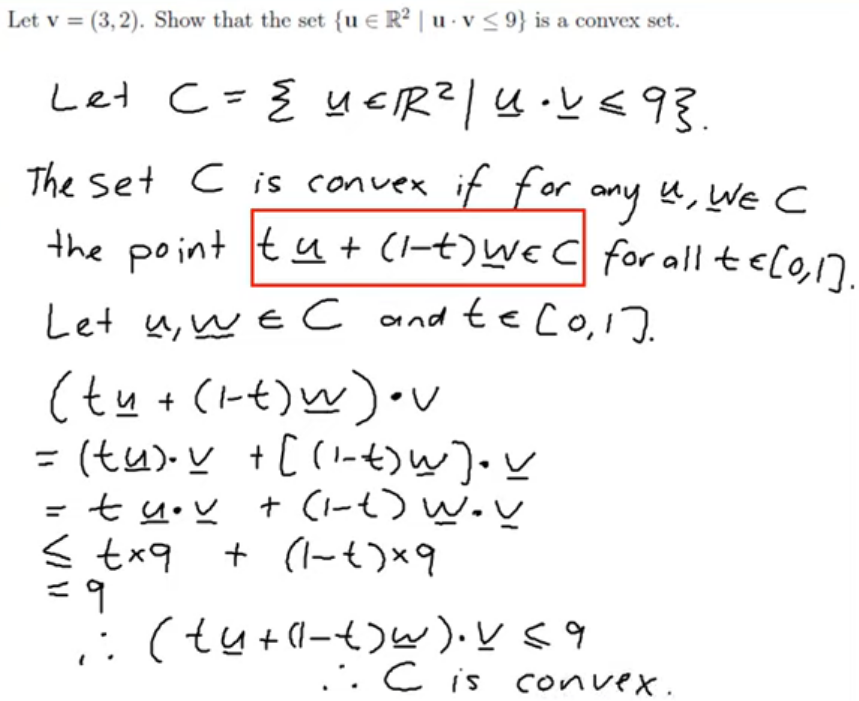 Let v = (3, 2). Show that the set {u ∈ ℝ² | u · v ≤ 9} is a convex set.
Let C = { u ∈ ℝ² | u · v ≤ 9}.
The set C is convex if for any u, w ∈ C
the point t u + (1-t) w ∈ C for all t ∈ [0,1].
Let u, w ∈ C and t ∈ [0,1].
(t u + (1-t) w) · v
= (t u) · v + [(1-t) w] · v
= t u · v + (1-t) w · v
≤ t×9 + (1-t)×9
= 9
∴ (t u + (1-t) w) · v ≤ 9
∴ C is convex.